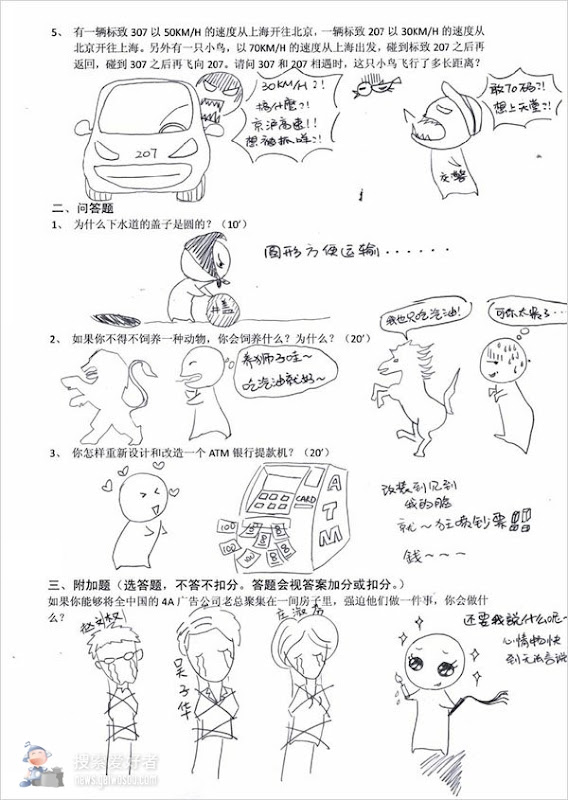 5、 有一辆标致 307 以 50KM/H 的速度从上海开往北京，一辆标致 207 以 30KM/H 的速度从
北京开往上海。另外有一只小鸟，以 70KM/H 的速度从上海出发，碰到标致 207 之后再
返回，碰到 307 之后再飞向 207。请问 307 和 207 相遇时，这只小鸟飞行了多长距离？
30KM/H?!
搞什麼?!
京沪高速!!
想被抓哇?!
敢70码?!
想上天堂?!
207
交警
二、问答题
1、 为什么下水道的盖子是圆的？（10’）
圆形方便运输......
井盖
2、 如果你不得不饲养一种动物，你会饲养什么？为什么？（20’）
养狮子哇~
吃汽油就好~
我也只吃汽油!
3、 你怎样重新设计和改造一个 ATM 银行提款机？（20’）
CARD
ATM
100
100
100
改装到见到
我的脸
就~狂喷钞票!!
錢~~~
三、附加题（选答题，不答不扣分。答题会视答案加分或扣分。）
如果你能够将全中国的 4A 广告公司老总聚集在一间房子里，强迫他们做一件事，你会做什
么？
吴子华
庄淑芬
还要我说什么呢~
心情愉快
到无法言说
搜索爱好者